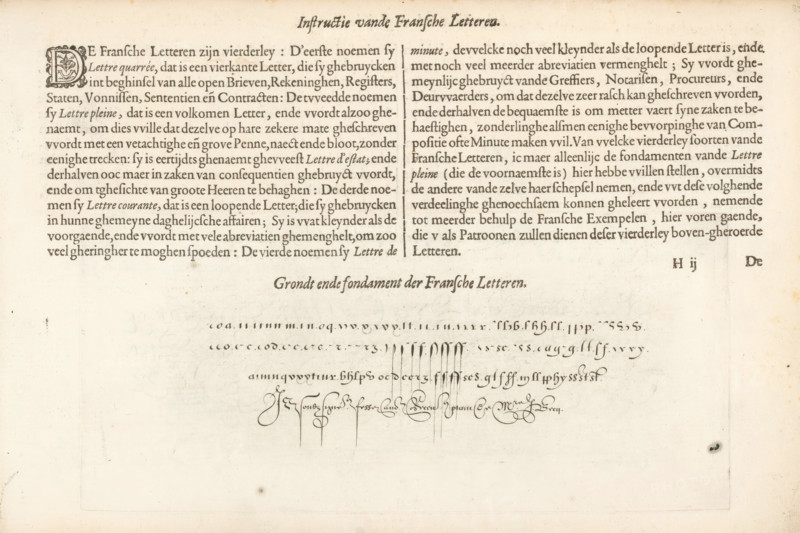 Instructie vande Fransche Letteren.
DE Fransche Letteren zijn vierderley : D'eerste noemen sy
Lettre quarrée, dat is een vierkante Letter, die sy ghebruycken
int beghinsel van alle open Brieven, Rekeninghen, Registers,
Staten, Vonnissen, Sententien eñ Contracten : De tvveedde noemen
sy Lettre pleine, dat is een volkomen Letter, ende vvordt alzoo ghe-
naemt, om dies vville dat dezelve op hare zekere mate gheschreven
vvordt met een vetachtighe eñ grove Penne, naect ende bloot, zonder
eenighe trecken: sy is eertijdts ghenaemt ghevveest Lettre d'estat; ende
derhalven ooc maer in zaken van consequentien ghebruyct vvordt,
ende om tghesichte van groote Heeren te behaghen : De derde noe-
men sy Lettre courante, dat is een loopende Letter; die sy ghebruycken
in hunne ghemeyne daghelijcsche affairen; Sy is vvat kleynder als de
voorgaende, ende vvordt met vele abreviatien ghemenghelt, om zoo
veel gheringher te moghen spoeden : De vierde noemen sy Lettre de
minute, devvelcke noch veel kleynder als de loopende Letter is, ende
met noch veel meerder abreviatien vermenghelt ; Sy vvordt ghe-
meynlijc ghebruyct vande Greffiers, Notarisen, Procureurs, ende
Deurvvaerders, om dat dezelve zeer rasch kan gheschreven vvorden,
ende derhalven de bequaemste is om metter vaert syne zaken te be-
haestighen, zonderlinghe alsmen eenighe bevvorpinghe van Com-
positie ofte Minute maken vvil. Van vvelcke vierderley soorten vande
Fransche Letteren, ic maer alleenlijc de fondamenten vande Lettre
pleine (die de voornaemste is) hier hebbe vvillen stellen, overmidts
de andere vande zelve haer schepsel nemen, ende vvt dese volghende
verdeelinghe ghenoechsaem konnen gheleert vvorden , nemende
tot meerder behulp de Fransche Exempelen , hier voren gaende,
die v als Patroonen zullen dienen deser vierderley boven-gheroerde
Letteren.
H ij De
Grondt ende fondament der Fransche Letteren.